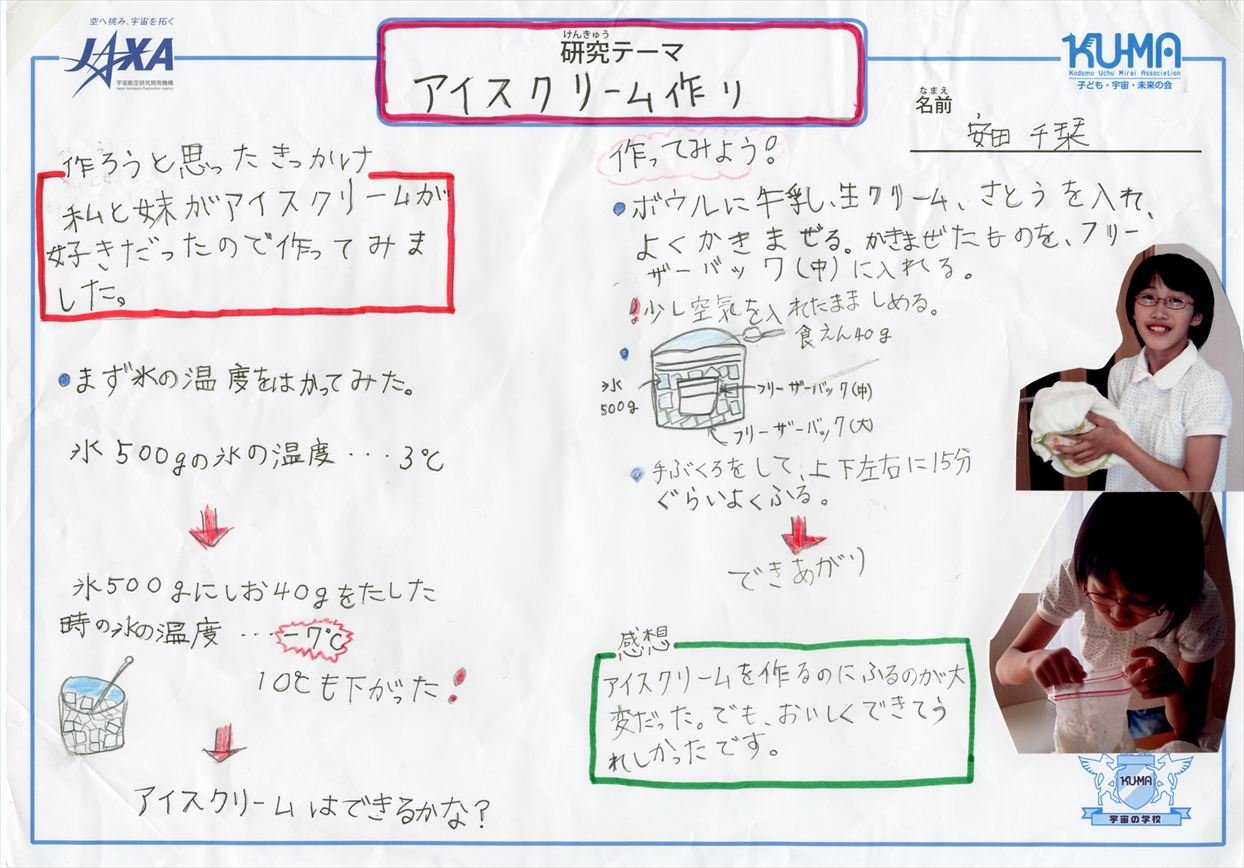 空へ挑み、宇宙を拓く
JAXA
宇宙航空研究開発機構
Japan Aerospace Exploration Agency
けんきゅう
研究テーマ
アイスクリーム作り
KU-MA
Kodomo Uchu Mirai Association
子ども・宇宙・未来の会
なまえ
名前
安田 千栞
作ろうと思ったきっかけ
私と妹がアイスクリームが
好きだったので作ってみま
した。
・まず氷の温度をはかってみた。
氷500gの氷の温度・・・3℃
氷500gにしお40gをたした
時の氷の温度・・・-7℃
10℃も下がった!
アイスクリームはできるかな?
作ってみよう!
・ボウルに牛乳、生クリーム、さとうを入れ、
よくかきまぜる。かきまぜたものを、フリー
ザーバック(中)に入れる。
!少し空気を入れたまましめる。
食えん40g
氷
500g
フリーザーバック(中)
フリーザーバック(大)
・手ぶくろをして、上下左右に15分
ぐらいよくふる。
できあがり
感想
アイスクリームを作るのにふるのが大
変だった。でも、おいしくできてう
れしかったです。
KU-MA
宇宙の学校